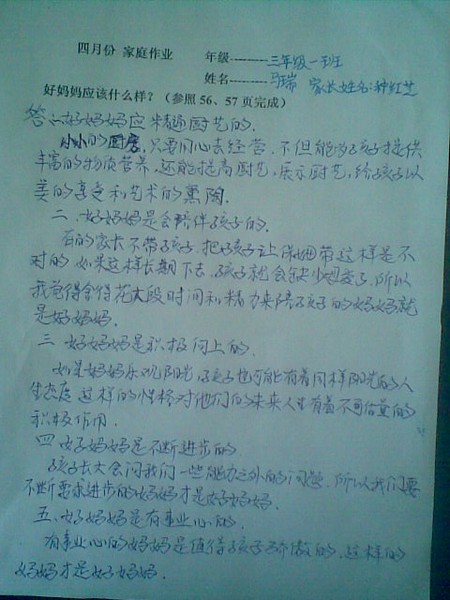 四月份 家庭作业 年级--------三年级一班
姓名--------马瑞 家长姓名:种红芝
好妈妈应该什么样?(参照56、57页完成)
答:一好妈妈应精通厨艺的.
小小的厨房,只要用心去经营,不但能够给孩子提供
丰富的物质营养,还能提高厨艺,展示厨艺,给孩子以
美的享受和艺术的熏陶.
二、好妈妈是会陪伴孩子的.
有的家长不带孩子,把孩子让保姆带这样是不
对的 如果这样长期下去,孩子就会缺少母爱了,所以
我觉得舍得花大段时间和精力来陪孩子的妈妈就
是好妈妈.
三 好妈妈是积极向上的.
如果妈妈乐观阳光 孩子也可能有着同样阳光的人
生态度 这样的性格对他们的未来人生有着不可估量的
积极作用.
四 好妈妈是不断进步的
孩子长大会问我们一些能力之外的问题,所以我们要
不断需求进步的妈妈才是好妈妈.
五、好妈妈是有事业心的.
有事业心的妈妈是值得孩子骄傲的,这样的
妈妈才是好妈妈.